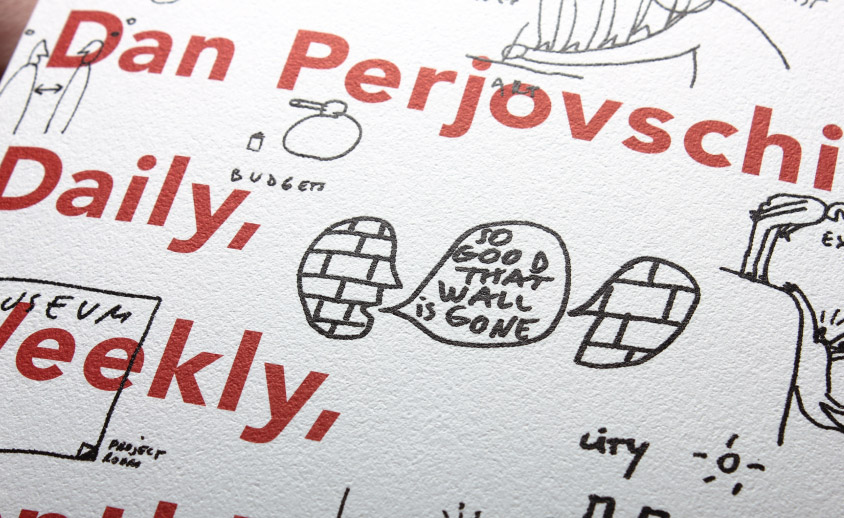 Dan Perjovschi
ART
BUDGETS
Daily,
SO
GOOD
THAT
WALL
is GONE
EX
USEUM
Weekly,
PROJECT
ROOM
CITY